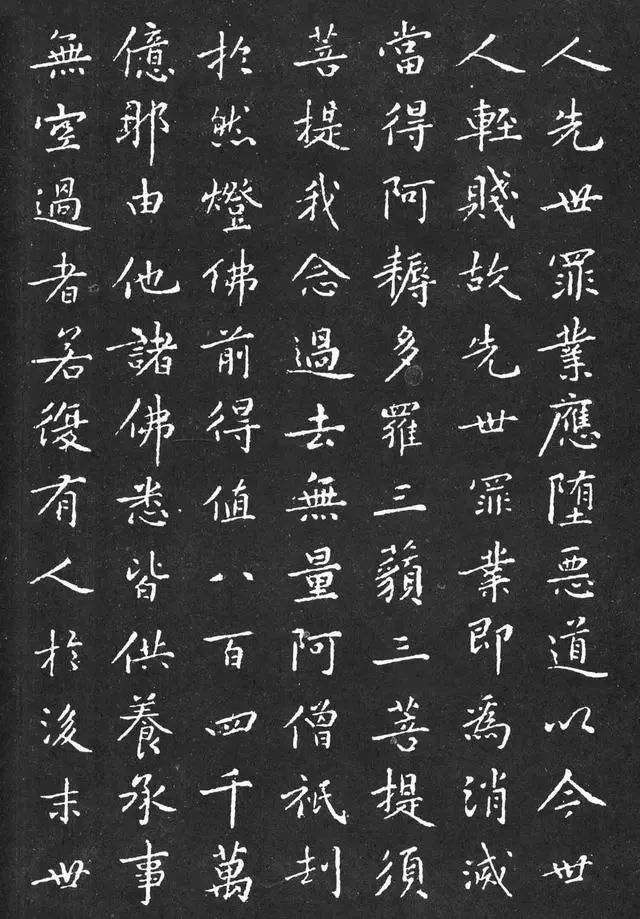 人先世罪業應堕惡道以今世
人輕賤故先世罪業即為消滅
當得阿耨多羅三藐三菩提須
菩提我念過去無量阿僧祇刦
扵然燈佛前得值八百四千萬
億那由他諸佛悉皆供養承事
無空過者若復有人扵後末世